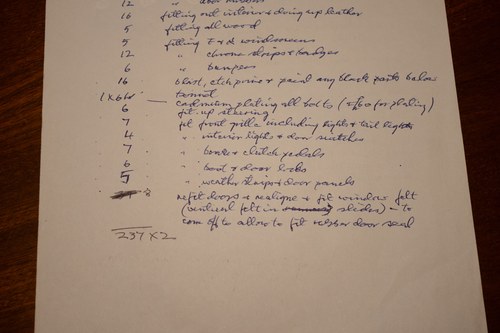 12 " door
16 fitting out interior & doing up leather
5 fitting all wood
5 fitting F & R windscreens
12 " chrome strips & badges
6 " bumpers
16 blast, etch prime & paint any black parts below
1 x 6hr bonnet
— cadmium plating all bolts (£60 for plating)
6 fit up steering
7 fit front grille including lights & tail lights
4 " interior lights & door switches
7 " brake & clutch pedals
6 " boot & door locks
5 " weather strips & door panels
8 refit doors & realigne & fit window felt
(vertical felt in slides) - to
come off to allow to fit door seal
237 x 2